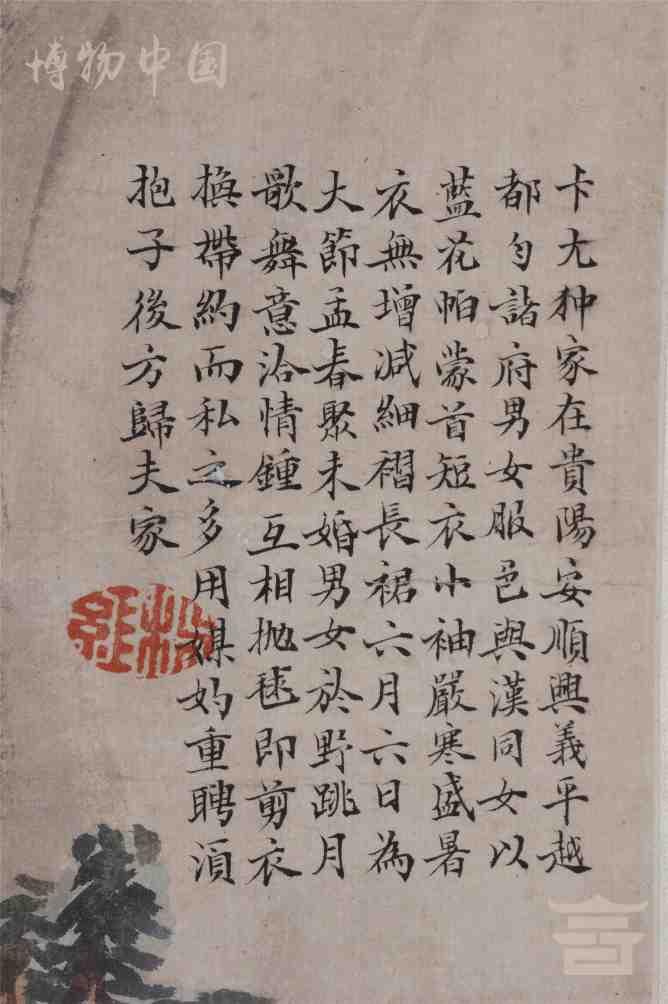 博物中国
卡尤狆家在貴陽安順興義平越
都匀諸府男女服色與漢同女以
藍花帕蒙首短衣小袖嚴寒盛暑
衣無增減細褶長裙六月六日為
大節孟春聚未婚男女於野跳月
歌舞意洽情鍾互相拋毬即剪衣
換帶約而私之多用媒妁重聘須
抱子後方歸夫家